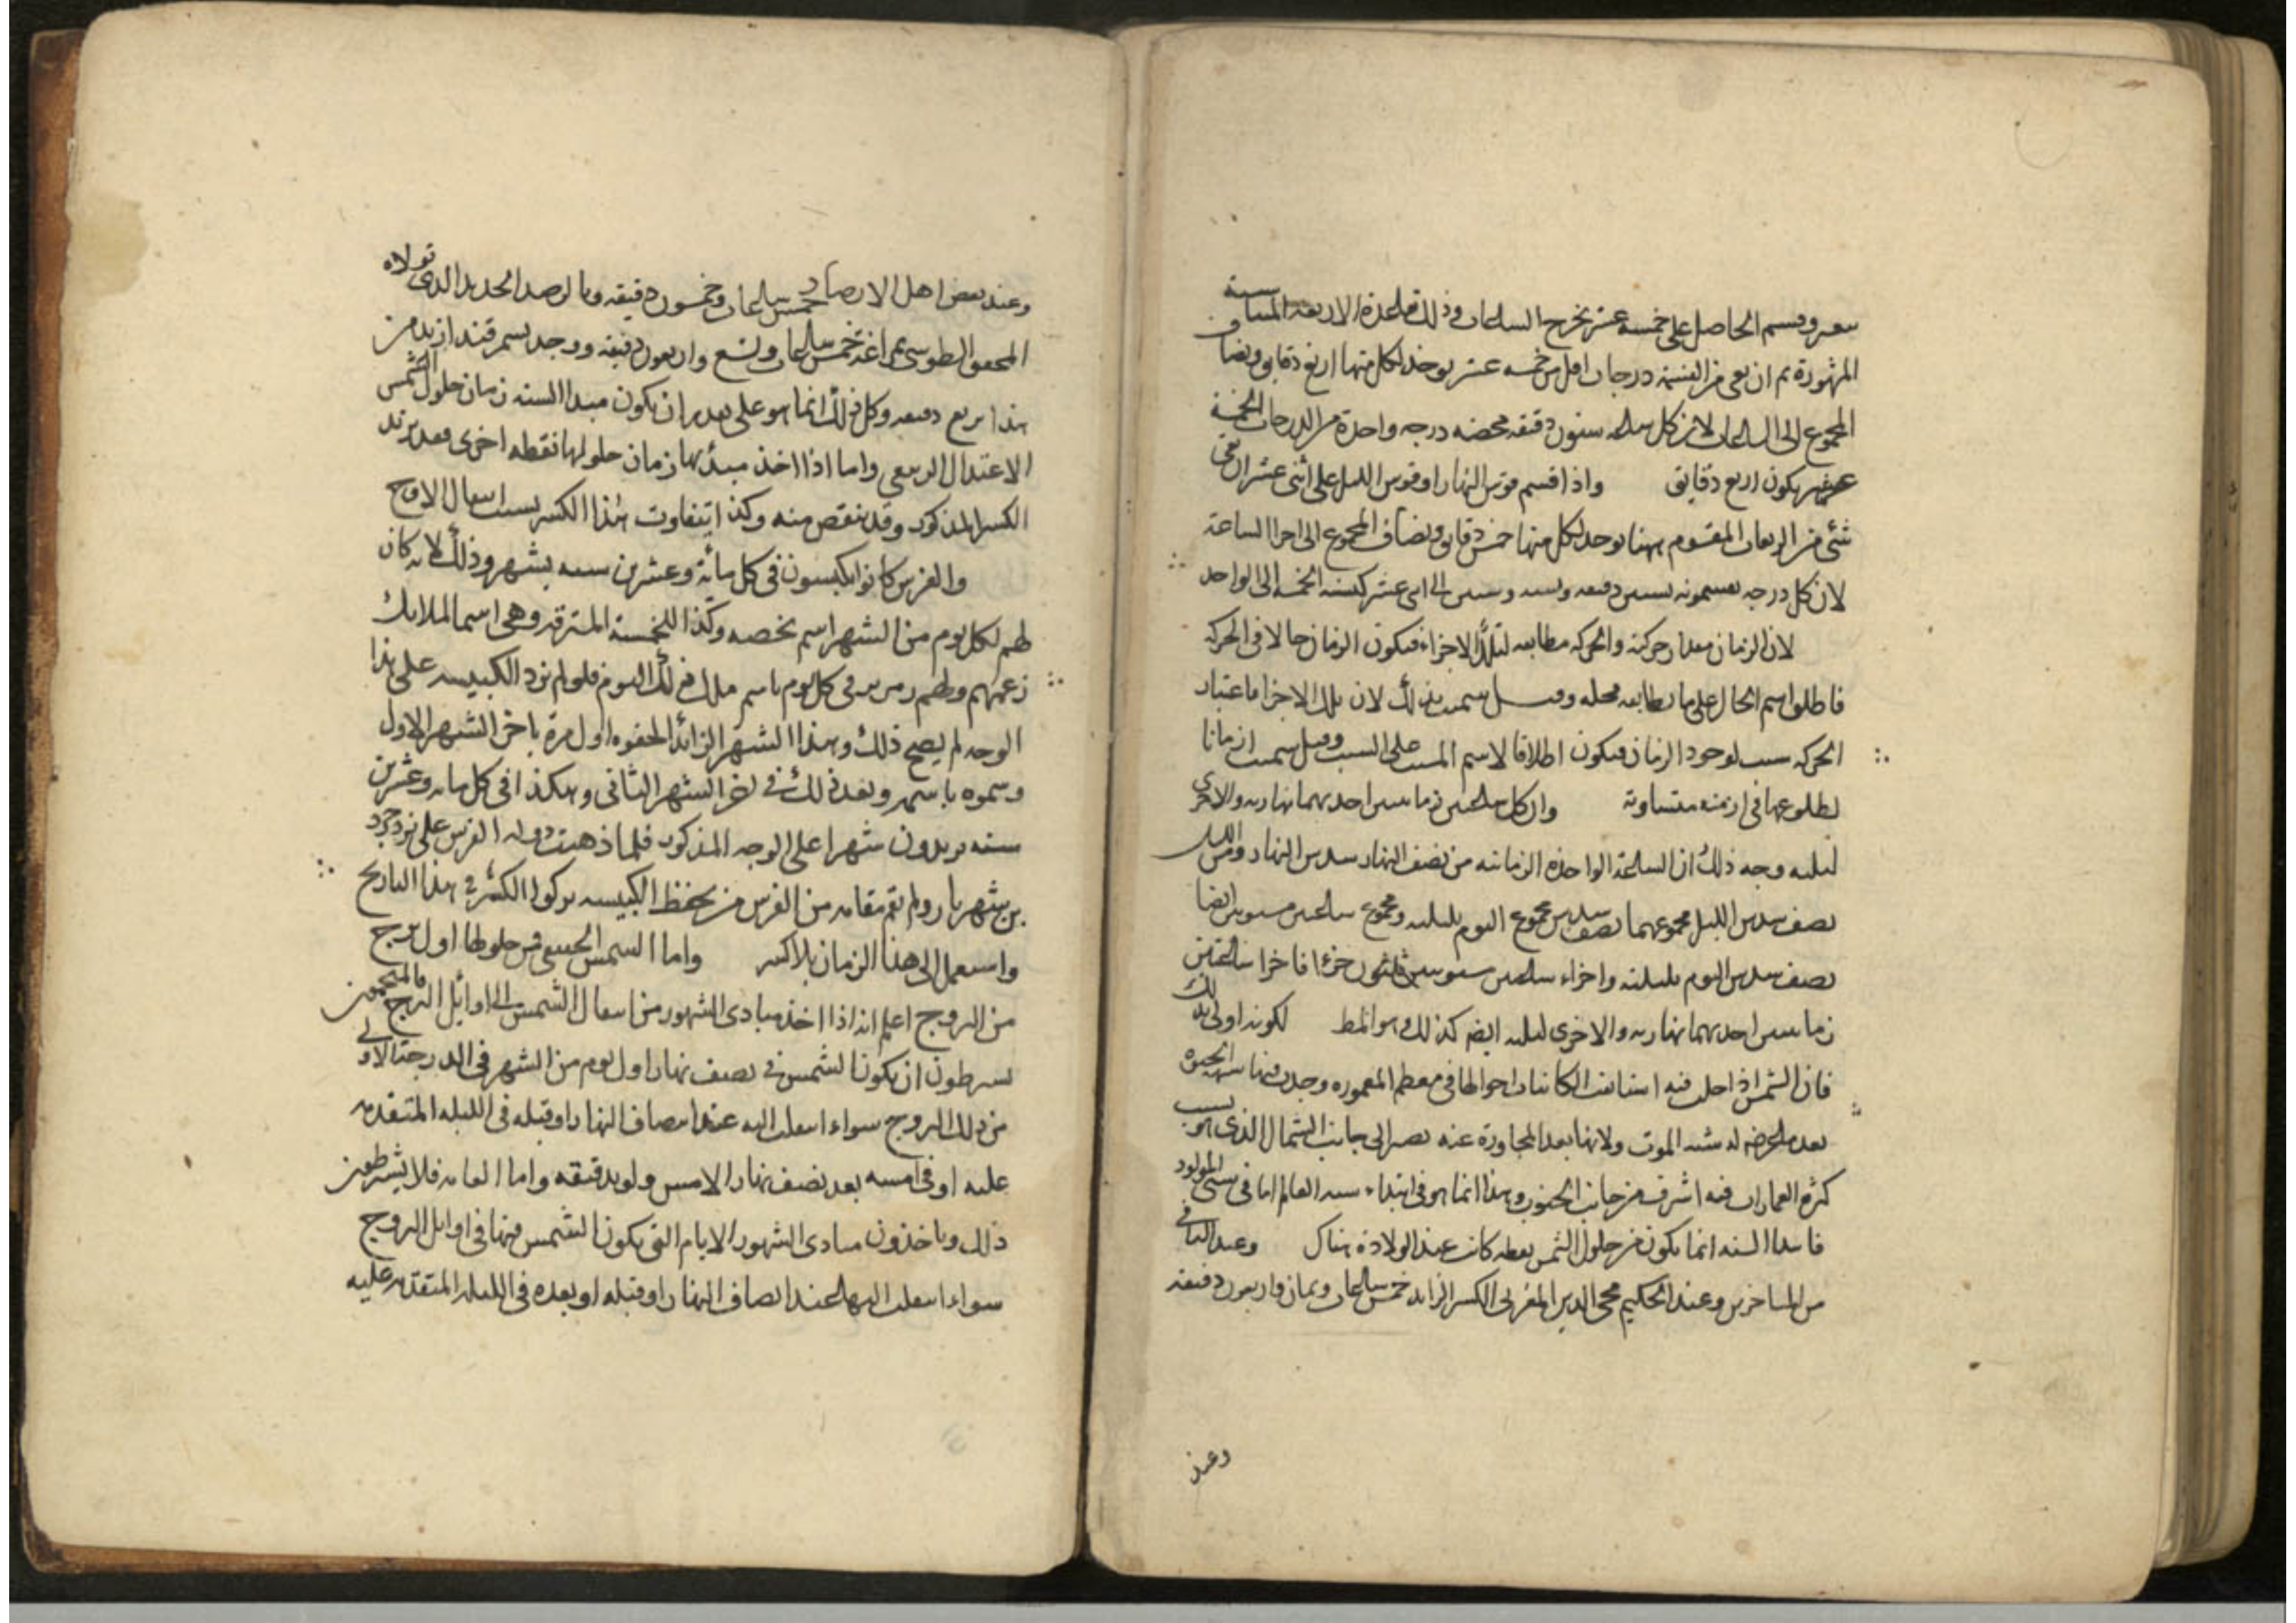 وقسم الحاصل على خمسة عشر يخرج الساعات وذلك قاعدة الاربعة المتناسبة
المشهورة ثم ان بقى من القسمة درجات اقل من خمسه عشر يوخذ لكل منها اربع دقايق ويضاف
المجموع الى الساعات لان كل ساعه ستون دقيقه فحصه درجه واحدة من الدرجات الخمسة
عشر يكون اربع دقايق واذا قسم قوس النهار او قوس الليل على اثنى عشر ان بقى
شئ من المقسوم بهنا يوخذ لكل منها خمس دقايق ويضاف المجموع الى اجزا الساعة
لان كل درجه يقسمونه بستين دقيقه ونسبه وستين الى اثنى عشر كنسبة الخمسه الى الواحد
لان الزمان مقدار حركته والحركه مطابقه لتلك الاجزاء فيكون الزمان حالا فى الحركه
فاطلق اسم الحال على ما يطابقه محله وقيل سميت بذلك لان تلك الاجزا باعتبار
الحركه سبب لوجود الزمان فيكون اطلاقا لاسم المسبب على السبب وقيل سميت ازمانا
لطلوعها فى ازمنه متساوية وان كل ساعتين زمانيتين احديهما نهاريه والاخرى
ليليه وجه ذلك ان الساعة الواحدة الزمانيه من نصف النهار سدس النهار ومن الليل
نصف سدس الليل مجموعهما نصف سدس مجموع اليوم بليلته ومجموع ساعتين مستويتين ايضا
نصف سدس اليوم بليلته واجزاء ساعتين مستويتين ثلثون جزءا فاجزا ساعتين
زمانيتين احديهما نهاريه والاخرى ليليه ايضا كذلك وهو المط لكونه اولى بذلك
فان الشمس اذا حلت فيه الكائنات احوالها فى معظم المعموره وجدت فيها الحيوه
بعد ما عرض له شبه الموت ولانها بعد المجاورة عنه تصير الى جانب الشمال الذى هو بسبب
كثره العمارات فيه اشرف من جانب الجنوب وهذا انما هو فى ابتداء سنه العالم اما فى سنى المولود
فابتدا السنه انما يكون من حلول الشمس نقطه كانت عند الولادة هناك وعند التبانى
من المتاخرين وعند الحكيم محى الدين المغربى الكسر الزايد خمس ساعات وثمان واربعون دقيقه
وعند
وعند بعض اهل الارصاد خمس ساعات وخمسون دقيقه وبالرصد الجديد الذى تولاه
المحقق الطوسى بمراغة خمس ساعات وتسع واربعون دقيقه ووجد بسمرقند ازيد من
هذا بربع دقيقه وكل ذلك انما هو على تقدير ان يكون مبدا السنه زمان حلول الشمس
الاعتدال الربيعى واما اذا اخذ مبدئها زمان حلولها نقطه اخرى فقد يزيد
الكسر المذكور وقد ينقص منه وكذا يتفاوت هذا الكسر بسبب انتقال الاوج
والفرس كانوا يكبسون فى كل مائة وعشرين سنه بشهر وذلك لانه كان
لهم لكل يوم من الشهر اسم يخصه وكذا للخمسة المسترقه وهى اسما الملائك
زعمهم ولهم فى كل يوم باسم ملك ذلك اليوم فلو لم تزد الكبيسه على هذا
الوجه لم يصح ذلك وهذا الشهر الزائد الحقوه اول مرة باخر الشهر الاول
وسموه باسمه وبعد ذلك فى اخر الشهر الثانى وهكذا فى كل مايه وعشرين
سنه يزيدون شهرا على الوجه المذكور فلما ذهبت دوله الفرس على يزدجرد
بن شهريار ولم تقم مقامه من الفرس من يحفظ الكبيسه تركوا الكسر فى هذا التاريخ
واستعمل الى هذا الزمان بلا كسر واما الشمس الحقيقى فمن حلولها اول برج
من البروج اعلم انه اذا اخذ مبادى الشهور من انتقال الشمس الى اوائل البرج فالمنجمون
يشرطون ان يكون الشمس فى نصف نهار اول يوم من الشهر فى الدرجة الاولى
من ذلك البروج سواء انتقلت اليه عند انتصاف النهار او قبله فى الليله المتقدمه
عليه او فى امسه بعد نصف نهار الامس ولو بدقيقه واما العامه فلا يشترطون
ذلك وياخذون مبادى الشهور الايام التى يكون الشمس فيها فى اوايل البروج
سواء انتقلت اليها عند انتصاف النهار او قبله او بعده فى الليله المتقدمه عليه